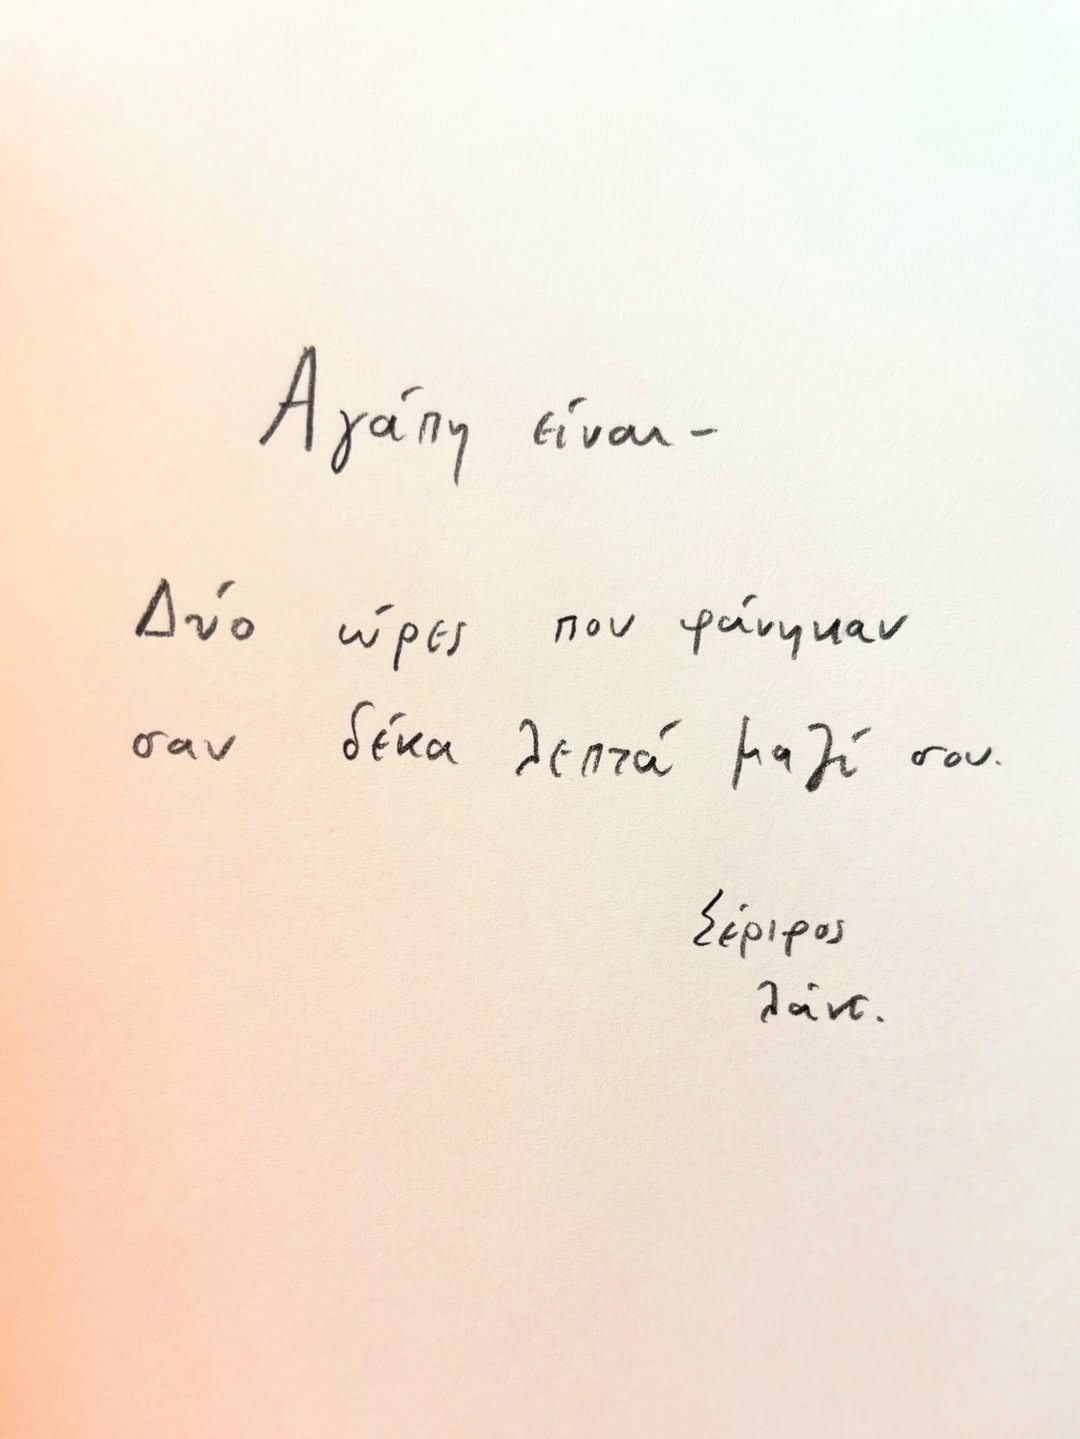 Αγάπη είναι -
Δύο ώρες που φάνηκαν
σαν δέκα λεπτά μαζί σου.
ξέριφος
λάντ.